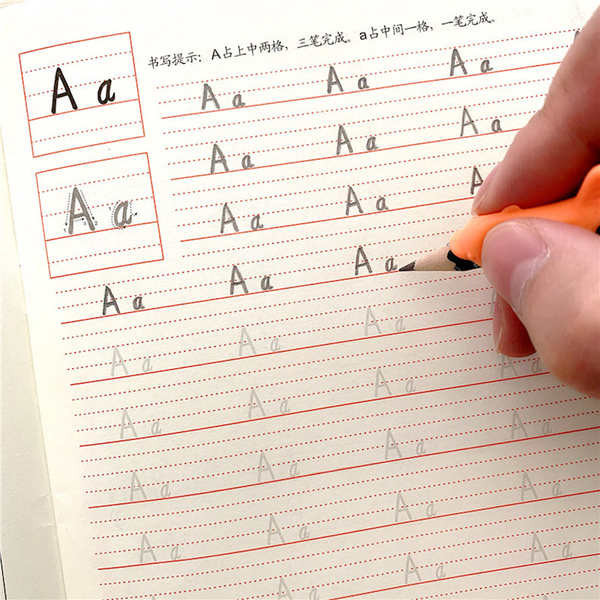 书写提示：A占上中两格，三笔完成。a占中间一格，一笔完成。
A a
A a A a A a
A a A a A a
A a
A a A a A
A a A a A a
A a A a A a
A a A a A a A a
A a A a A a A a
A a A a A a A a
A a A a A a